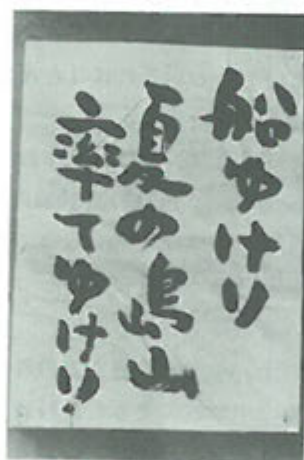 船ゆけり
夏の島山
率てゆけり